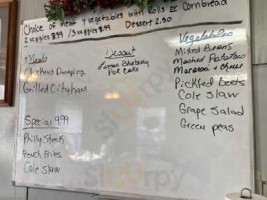 Choice of Meat & Vegetables with Rolls or Cornbread
2 veggies 8.99 / 3 veggies 9.99 Dessert 2.50
Meats
Chicken & Dumpling
Grilled City ham
Special 9.99
Philly Steak
French Fries
Cole Slaw
Dessert
Lemon Blueberry
Poke Cake
Vegetables
Mixed Beans
Mashed Potatoes
Macaroni & Cheese
Pickled Beets
Cole Slaw
Grape Salad
Green peas